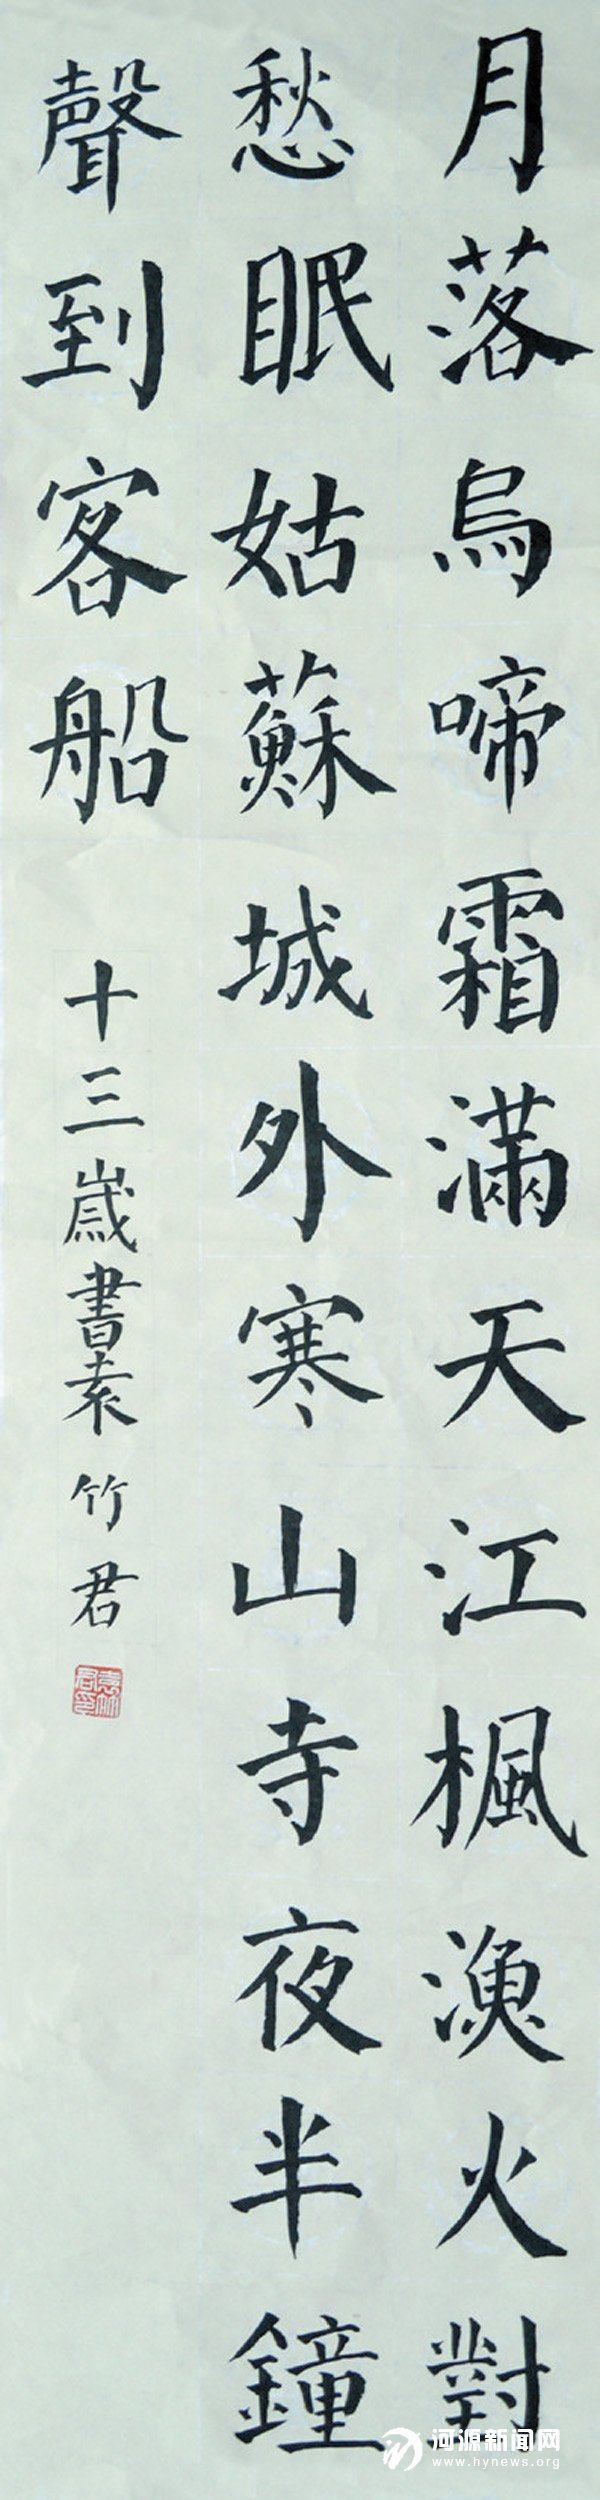 月落烏啼霜滿天江楓漁火對
愁眠姑蘇城外寒山寺夜半鐘
聲到客船
十三歲書袁竹君
袁竹君印
河源新闻网
www.hynews.org